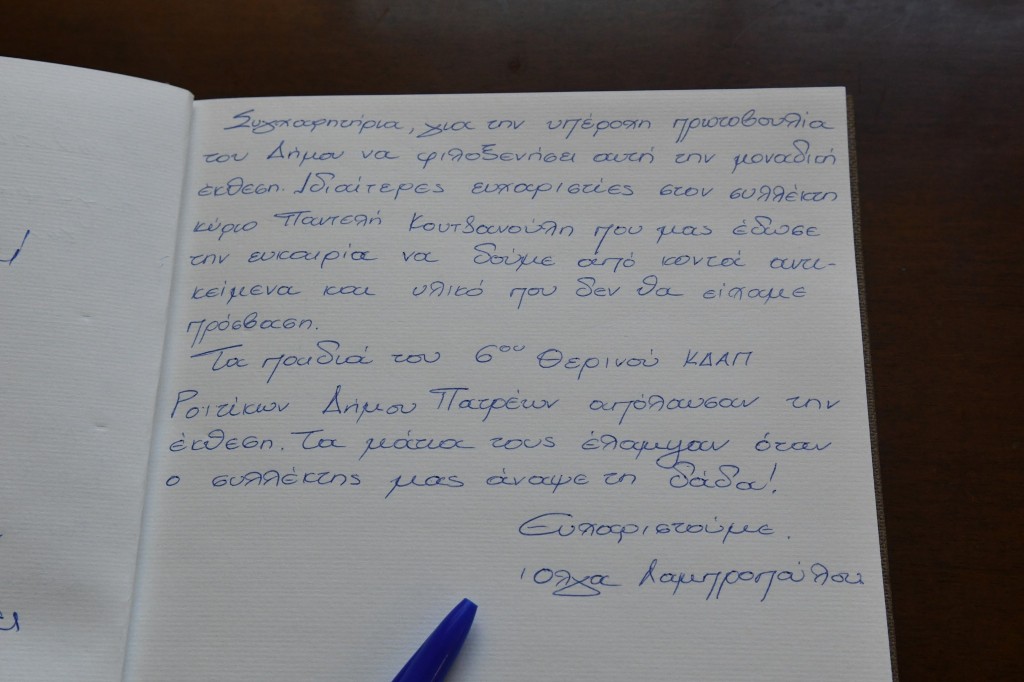 Συγχαρητήρια, για την υπέροχη πρωτοβουλία
του Δήμου να φιλοξενήσει αυτή την μοναδική
έκθεση. Ιδιαίτερες ευχαριστίες στον συλλέκτη
κύριο Παντελή που μας έδωσε
την ευκαιρία να δούμε από κοντά αντι-
κείμενα και υλικό που δεν θα είχαμε
πρόσβαση.
Τα παιδιά του 6ου Θερινού ΚΔΑΠ
Ροιτίκων Δήμου Πατρέων απόλαυσαν την
έκθεση. Τα μάτια τους έλαμψαν όταν
ο συλλέκτης μας άναψε τη δάδα!
Ευχαριστούμε.
Όλγα Λαμπροπούλου